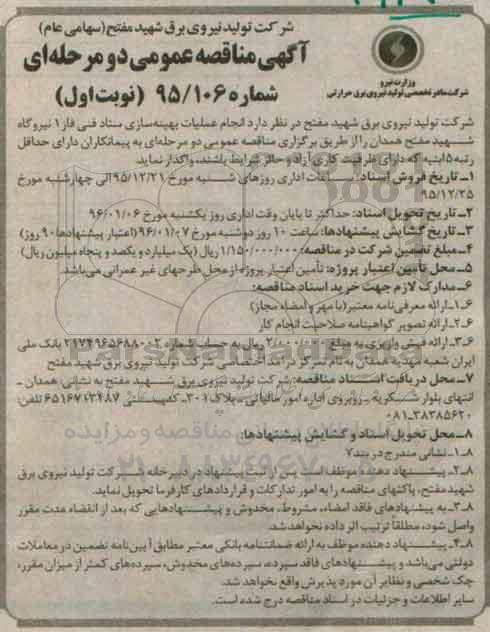 شرکت تولید نیروی برق شهید مفتح (سهامی عام)
آگهی مناقصه عمومی دو مرحله‌ای
شماره ۹۵/۱۰۶ (نوبت اول)
وزارت نیرو
شرکت مادر تخصصی تولید نیروی برق حرارتی
شرکت تولید نیروی برق شهید مفتح در نظر دارد انجام عملیات بهینه‌سازی ستاد فنی فاز ۱ نیروگاه
شهید مفتح همدان را از طریق برگزاری مناقصه عمومی دو مرحله‌ای به پیمانکاران دارای حداقل
رتبه ۵ ابنیه که دارای ظرفیت کاری آزاد و حائز شرایط باشند، واگذار نماید.
۱ـ تاریخ فروش اسناد: ساعات اداری روزهای شنبه مورخ ۹۵/۱۲/۲۱ الی چهارشنبه مورخ
۹۵/۱۲/۲۵
۲ـ تاریخ تحویل اسناد: حداکثر تا پایان وقت اداری روز یکشنبه مورخ ۹۶/۰۱/۰۶
۳ـ تاریخ گشایش پیشنهادها: ساعت ۱۰ روز دوشنبه مورخ ۹۶/۰۱/۰۷ (اعتبار پیشنهادها ۹۰ روز)
۴ـ مبلغ تضمین شرکت در مناقصه: ۱/۱۵۰/۰۰۰/۰۰۰ ریال (یک میلیارد و یکصد و پنجاه میلیون ریال)
۵ـ محل تأمین اعتبار پروژه: تأمین اعتبار پروژه از محل طرحهای غیر عمرانی می‌باشد.
۶ـ مدارک لازم جهت خرید اسناد مناقصه:
۶ـ۱ـ ارائه معرفی‌نامه معتبر (با مهر و امضاء مجاز)
۶ـ۲ـ ارائه تصویر گواهینامه صلاحیت انجام کار
۶ـ۳ـ ارائه فیش واریزی به مبلغ ۲/۰۰۰/۰۰۰ ریال به حساب شماره ۲۱۷۴۹۶۵۶۸۸۰۰۲ بانک ملی
ایران شعبه مهدیه همدان به نام تمرکز درآمد اختصاصی شرکت تولید نیروی برق شهید مفتح
۷ـ محل دریافت اسناد مناقصه: شرکت تولید نیروی برق شهید مفتح به نشانی: همدان ـ
انتهای بلوار شکریه ـ روبروی اداره امور مالیاتی ـ پلاک ۳۰۱ـ کدپستی ۶۵۱۶۷۱۳۴۸۷ تلفن:
۰۸۱ـ۳۸۳۸۵۶۲۰
۸ـ محل تحویل اسناد و گشایش پیشنهادها:
۸ـ۱ـ نشانی مندرج در بند ۷
۸ـ۲ـ پیشنهاد دهنده موظف است پس از ثبت پیشنهاد در دبیرخانه شرکت تولید نیروی برق
شهید مفتح، پاکتهای مناقصه را به امور تدارکات و قراردادهای کارفرما تحویل نماید.
۸ـ۳ـ به پیشنهادهای فاقد امضاء، مشروط، مخدوش و پیشنهادهایی که بعد از انقضاء مدت مقرر
واصل شود، مطلقاً ترتیب اثر داده نخواهد شد.
۸ـ۴ـ پیشنهاد دهنده موظف به ارائه ضمانتنامه بانکی معتبر مطابق آیین‌نامه تضمین در معاملات
دولتی می‌باشد و پیشنهادهای فاقد سپرده، سپرده‌های مخدوش، سپرده‌های کمتر از میزان مقرر،
چک شخصی و نظایر آن مورد پذیرش واقع نخواهد شد.
سایر اطلاعات و جزئیات در اسناد مناقصه درج شده است.